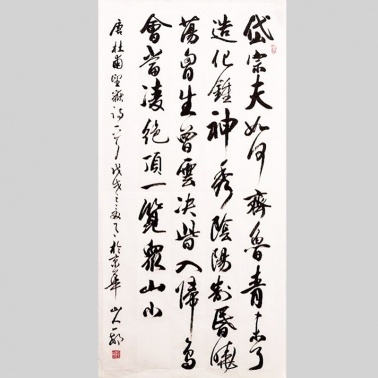 岱宗夫如何齊魯青未了
造化鍾神秀陰陽割昏曉
蕩胷生曾雲決眥入歸鳥
會當凌絕頂一覽眾山小
唐杜甫望嶽詩一首戊戌之夏於京華